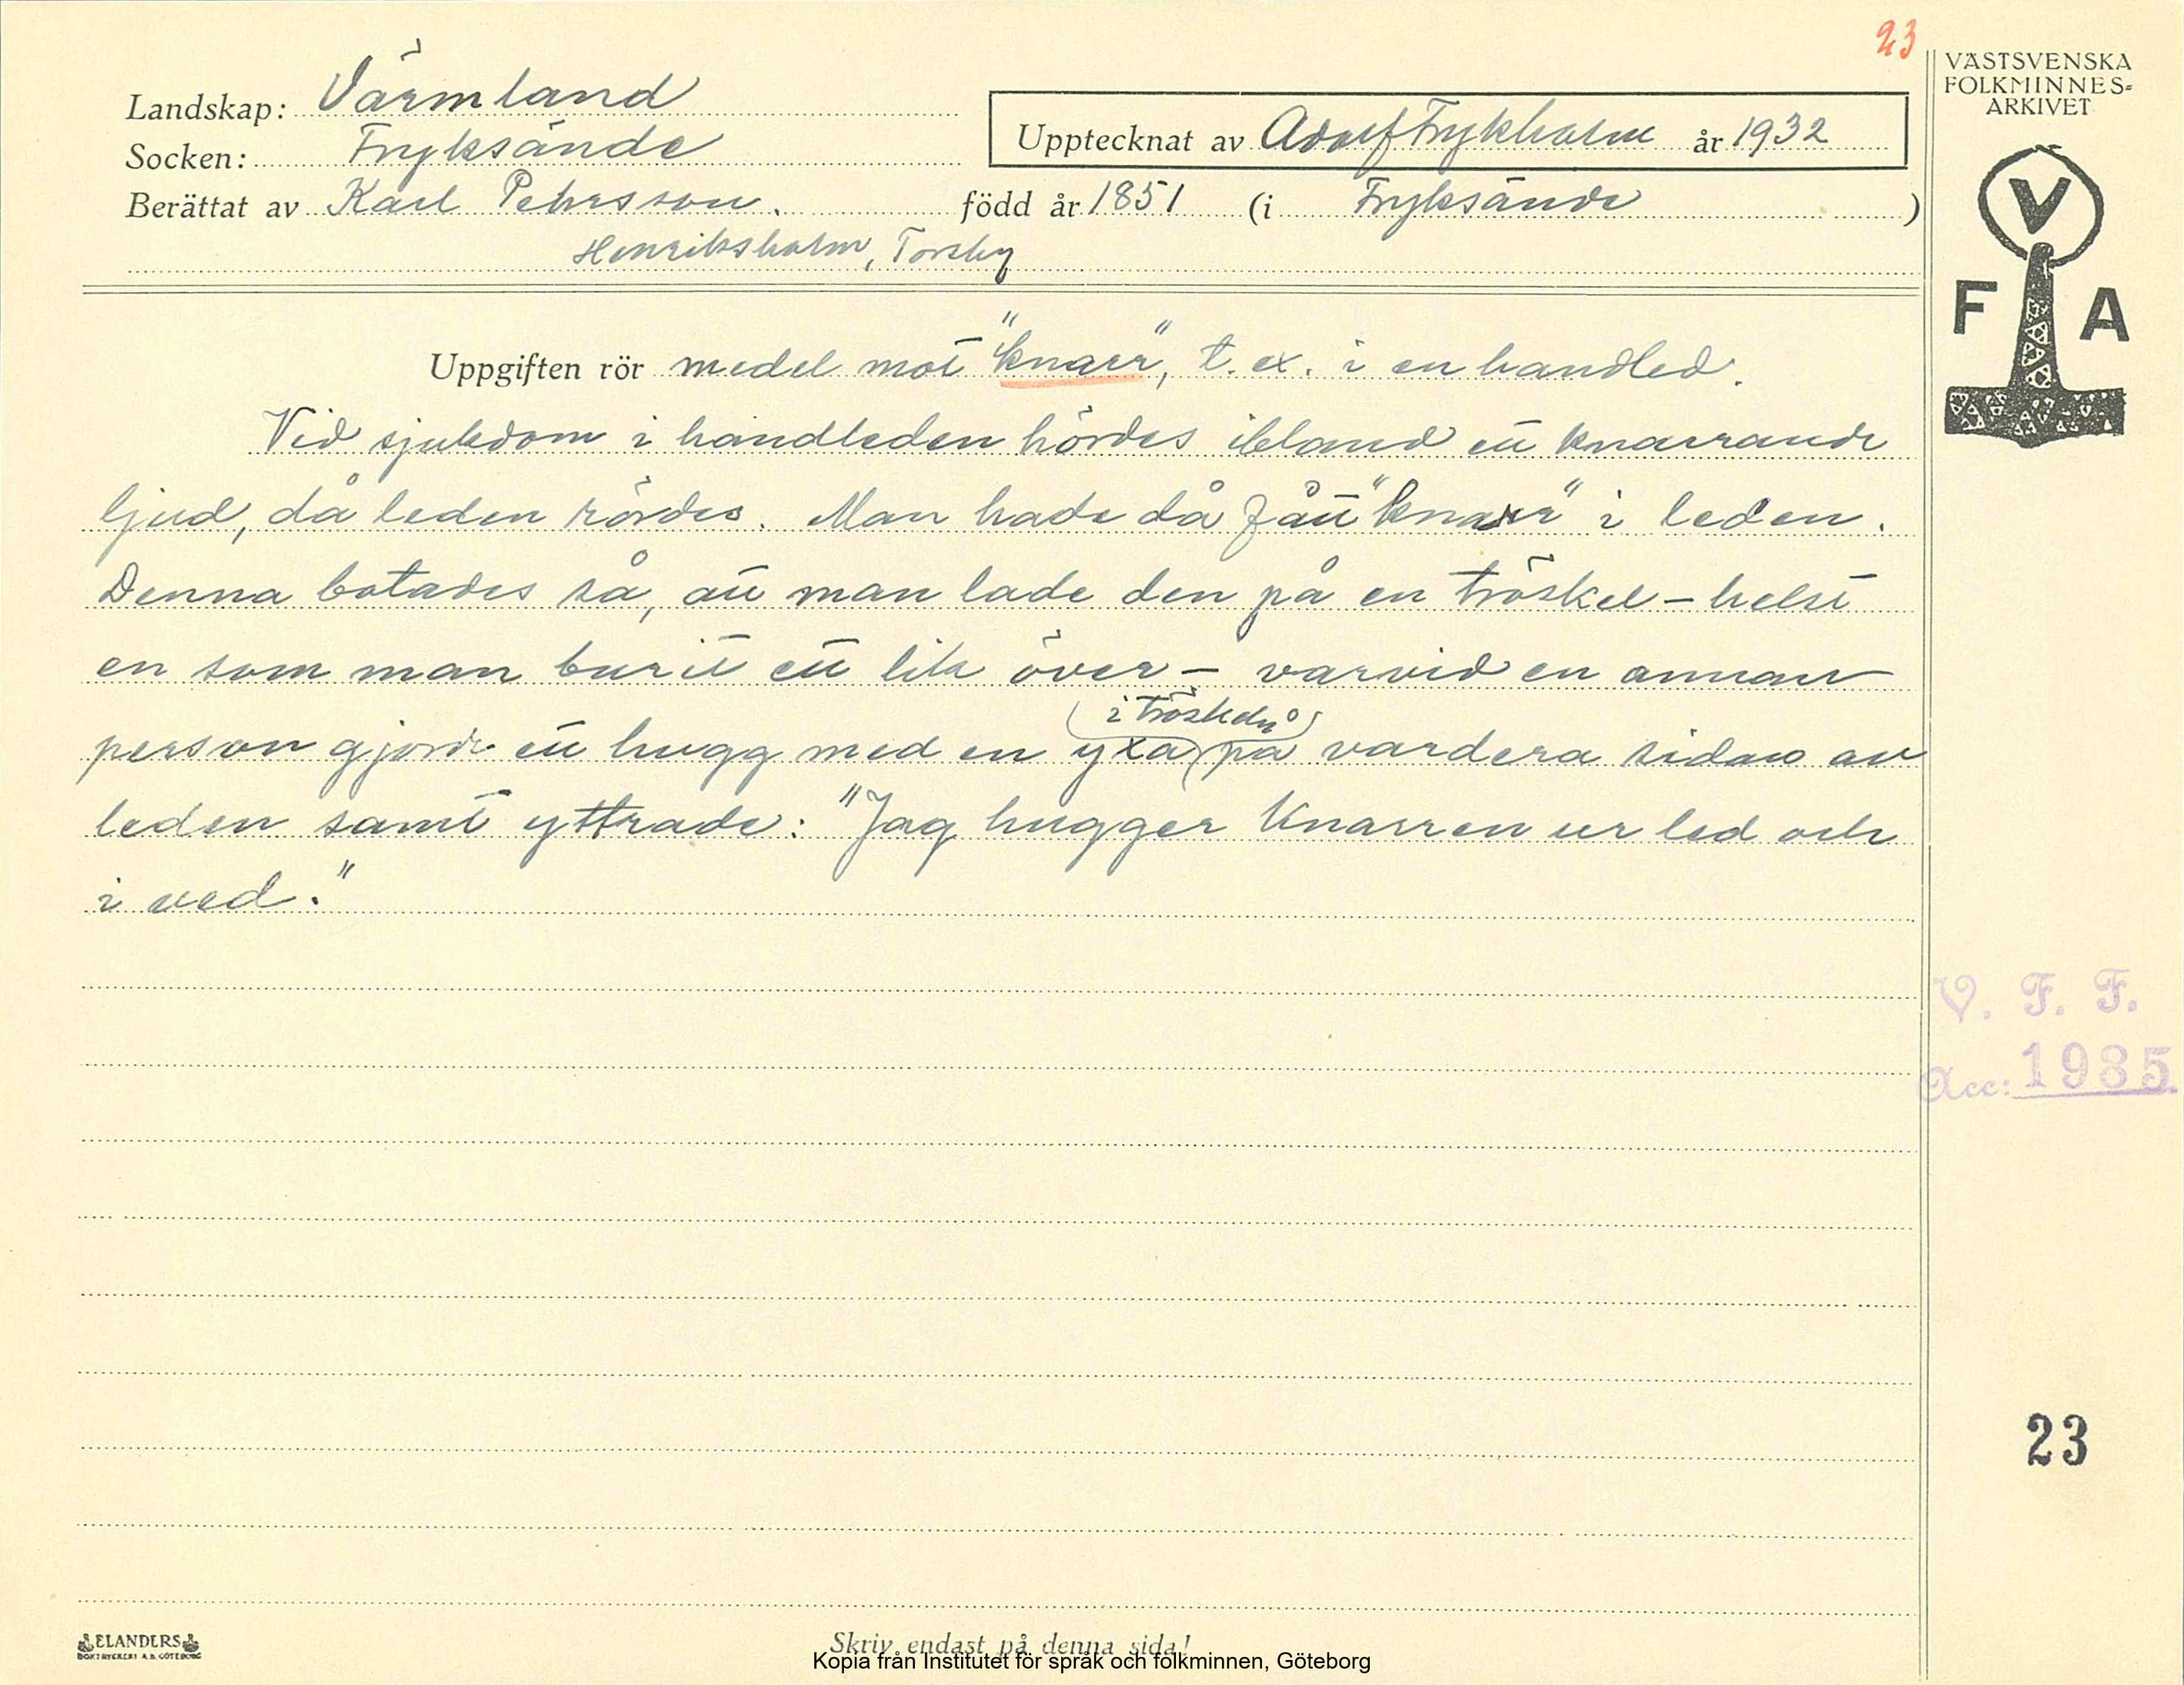 23
VÄSTSVENSKA
FOLKMINNES=
ARKIVET
Landskap: Värmland
Socken: Fryksände
Upptecknat av Adolf Frykholm år 1932
Berättat av Karl Pehrsson. född år 1851 (i Fryksände)
Henriksholm, Torsby
V
F A
Uppgiften rör medel mot "knarr", t. ex. i en handled.
Vid sjukdom i handleden hördes ibland ett knarrande
ljud, då leden rördes. Man hade då fått "knarr" i leden.
Denna botades så, att man lade den på en tröskel – helst
en som man burit ett lik över – varvid en annan
i tröskeln
person gjorde ett hugg med en yxa på vardera sidan av
leden samt yttrade: "Jag hugger knarren ur led och
i ved."
V. F. F.
Acc: 1985
23
ELANDERS
BOKTRYCKERI A.B. GÖTEBORG
Skriv endast på denna sida!
Kopia från Institutet för språk och folkminnen, Göteborg